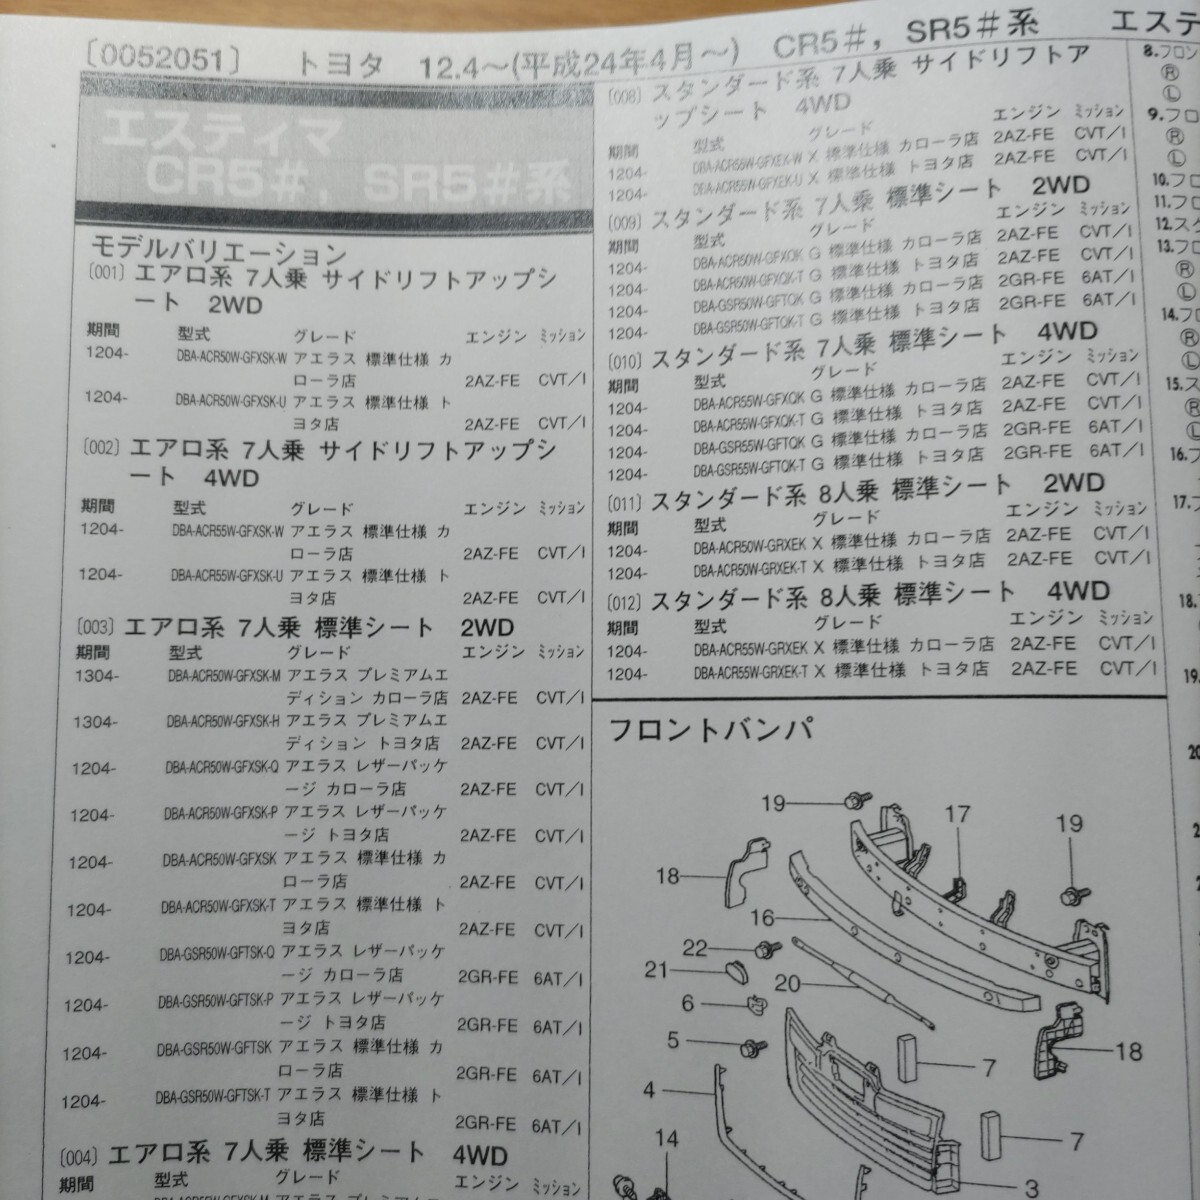 〔0052051〕 トヨタ 12.4～(平成24年4月～) CR5＃, SR5＃系 エステ
エスティマ
CR5＃, SR5＃系
モデルバリエーション
〔001〕エアロ系 7人乗 サイドリフトアップシ
ート 2WD
期間 型式 グレード エンジン ミッション
1204- DBA-ACR50W-GFXSK-W アエラス 標準仕様 カ
ローラ店 2AZ-FE CVT／I
1204- DBA-ACR50W-GFXSK-U アエラス 標準仕様 ト
ヨタ店 2AZ-FE CVT／I
〔002〕エアロ系 7人乗 サイドリフトアップシ
ート 4WD
期間 型式 グレード エンジン ミッション
1204- DBA-ACR55W-GFXSK-W アエラス 標準仕様 カ
ローラ店 2AZ-FE CVT／I
1204- DBA-ACR55W-GFXSK-U アエラス 標準仕様 ト
ヨタ店 2AZ-FE CVT／I
〔003〕エアロ系 7人乗 標準シート 2WD
期間 型式 グレード エンジン ミッション
1304- DBA-ACR50W-GFXSK-M アエラス プレミアムエ
ディション カローラ店 2AZ-FE CVT／I
1304- DBA-ACR50W-GFXSK-H アエラス プレミアムエ
ディション トヨタ店 2AZ-FE CVT／I
1204- DBA-ACR50W-GFXSK-Q アエラス レザーパッケ
ージ カローラ店 2AZ-FE CVT／I
1204- DBA-ACR50W-GFXSK-P アエラス レザーパッケ
ージ トヨタ店 2AZ-FE CVT／I
1204- DBA-ACR50W-GFXSK アエラス 標準仕様 カ
ローラ店 2AZ-FE CVT／I
1204- DBA-ACR50W-GFXSK-T アエラス 標準仕様 ト
ヨタ店 2AZ-FE CVT／I
1204- DBA-GSR50W-GFTSK-Q アエラス レザーパッケ
ージ カローラ店 2GR-FE 6AT／I
1204- DBA-GSR50W-GFTSK-P アエラス レザーパッケ
ージ トヨタ店 2GR-FE 6AT／I
1204- DBA-GSR50W-GFTSK アエラス 標準仕様 カ
ローラ店 2GR-FE 6AT／I
1204- DBA-GSR50W-GFTSK-T アエラス 標準仕様 ト
ヨタ店 2GR-FE 6AT／I
〔004〕エアロ系 7人乗 標準シート 4WD
期間 型式 グレード エンジン ミッション
〔008〕スタンダード系 7人乗 サイドリフトア
ップシート 4WD
期間 型式 グレード エンジン ミッション
1204- DBA-ACR55W-GFXEK-W X 標準仕様 カローラ店 2AZ-FE CVT／I
1204- DBA-ACR55W-GFXEK-U X 標準仕様 トヨタ店 2AZ-FE CVT／I
〔009〕スタンダード系 7人乗 標準シート 2WD
期間 型式 グレード エンジン ミッション
1204- DBA-ACR50W-GFXQK G 標準仕様 カローラ店 2AZ-FE CVT／I
1204- DBA-ACR50W-GFXQK-T G 標準仕様 トヨタ店 2AZ-FE CVT／I
1204- DBA-GSR50W-GFTQK G 標準仕様 カローラ店 2GR-FE 6AT／I
1204- DBA-GSR50W-GFTQK-T G 標準仕様 トヨタ店 2GR-FE 6AT／I
〔010〕スタンダード系 7人乗 標準シート 4WD
期間 型式 グレード エンジン ミッション
1204- DBA-ACR55W-GFXQK G 標準仕様 カローラ店 2AZ-FE CVT／I
1204- DBA-ACR55W-GFXQK-T G 標準仕様 トヨタ店 2AZ-FE CVT／I
1204- DBA-GSR55W-GFTQK G 標準仕様 カローラ店 2GR-FE 6AT／I
1204- DBA-GSR55W-GFTQK-T G 標準仕様 トヨタ店 2GR-FE 6AT／I
〔011〕スタンダード系 8人乗 標準シート 2WD
期間 型式 グレード エンジン ミッション
1204- DBA-ACR50W-GRXEK X 標準仕様 カローラ店 2AZ-FE CVT／I
1204- DBA-ACR50W-GRXEK-T X 標準仕様 トヨタ店 2AZ-FE CVT／I
〔012〕スタンダード系 8人乗 標準シート 4WD
期間 型式 グレード エンジン ミッション
1204- DBA-ACR55W-GRXEK X 標準仕様 カローラ店 2AZ-FE CVT／I
1204- DBA-ACR55W-GRXEK-T X 標準仕様 トヨタ店 2AZ-FE CVT／I
フロントバンパ
19
17
19
18
16
22
21
20
6
5
7
18
4
7
14
3
8.フロン
Ⓡ
Ⓛ
9.フロ
Ⓡ
Ⓛ
10.フロ
11.フロ
12.スク
13.フロ
Ⓡ
Ⓛ
14.フロ
Ⓡ
Ⓛ
15.ス
Ⓡ
Ⓛ
16.
17.
18.
19.
20